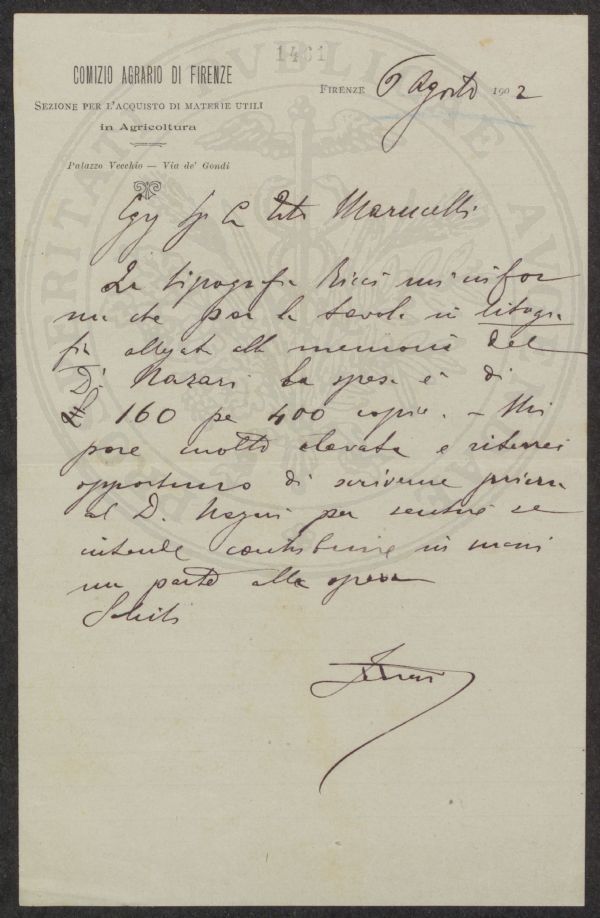 1461
COMIZIO AGRARIO DI FIRENZE
SEZIONE PER L'ACQUISTO DI MATERIE UTILI
in Agricoltura
Palazzo Vecchio — Via de' Gondi
FIRENZE 6 Agosto 1902
Marucelli
La tipografia Ricci mi infor
ma che per la tavola in litogra
fia allegata alla memoria del
D. Nazari la spesa è di
160 per 400 copie. - Mi
pare molto elevata e riterrei
opportuno di scriverne prima
al D. Nazari per sentire se
intende contribuire in
una parte alla spesa
Saluti